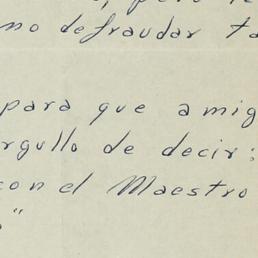 mo defraudar ta
para que amig
rgullo de decir:
con el Maestro
"